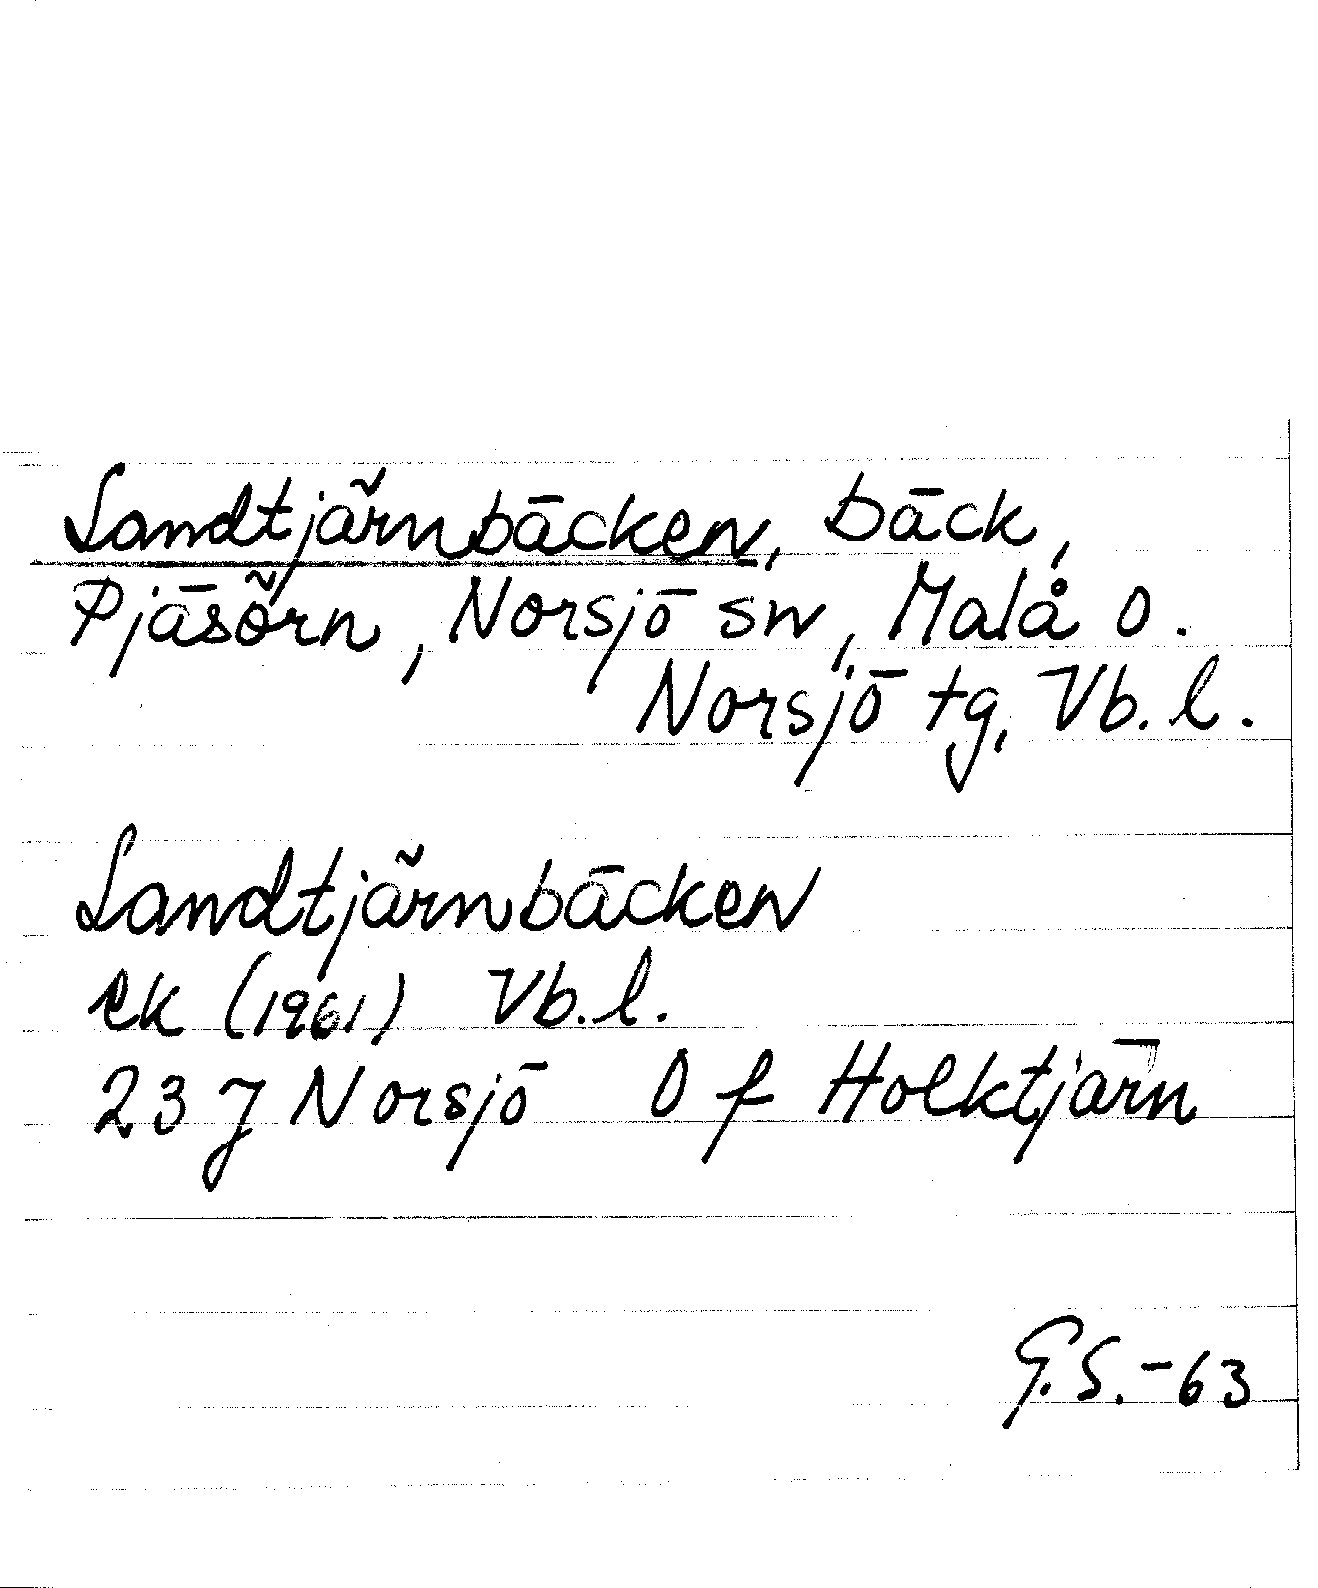 Landtjärnbäcken, bäck,
Pjäsörn, Norsjö sn, Malå o.
Norsjö tg, Vb. l.
Landtjärnbäcken
ek (1961) Vb. l.
23 J Norsjö O f Holktjärn
G.S.-63